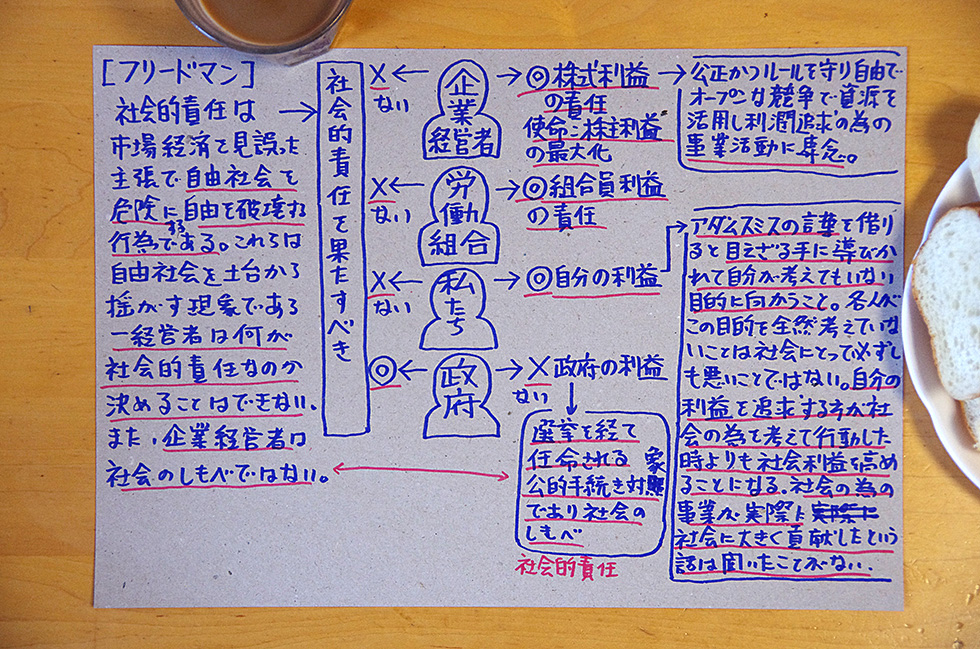 [フリードマン]
社会的責任は
市場経済で見誤った
主張で自由社会を
危険にする
自由を破壊する
行為である。これらは
自由社会を土台から
揺がす現象である
一経営者は何が
社会的責任なのか
決めることはできない、
また、企業経営者は
社会のしもべではない。
社会的責任を果たすべき
×
ない
企業
経営者
◎株式利益
の責任
使命=株主利益
の最大化
公正かつルールを守り自由で
オープンな競争で資源を
活用し利潤追求の為の
事業活動に専念。
×
ない
労働
組合
◎組合員利益
の責任
×
ない
私たち
◎自分の利益
アダムスミスの言葉を借り
ると目えざる手に導びか
れて自分が考えてもいない
目的に向かうこと。各人が
この目的を全然考えていな
いことは社会にとって必ずし
も悪いことではない。自分の
利益を追求する方が社
会の為を考えて行動した
時よりも社会利益を高め
ることになる。社会の為の
事業が実際に実際に
社会に大きく貢献したという
話は聞いたことがない.
◎
政府
×政府の利益
ない
選挙を経て
任命される
公的手続き対象
であり社会の
しもべ
社会的責任